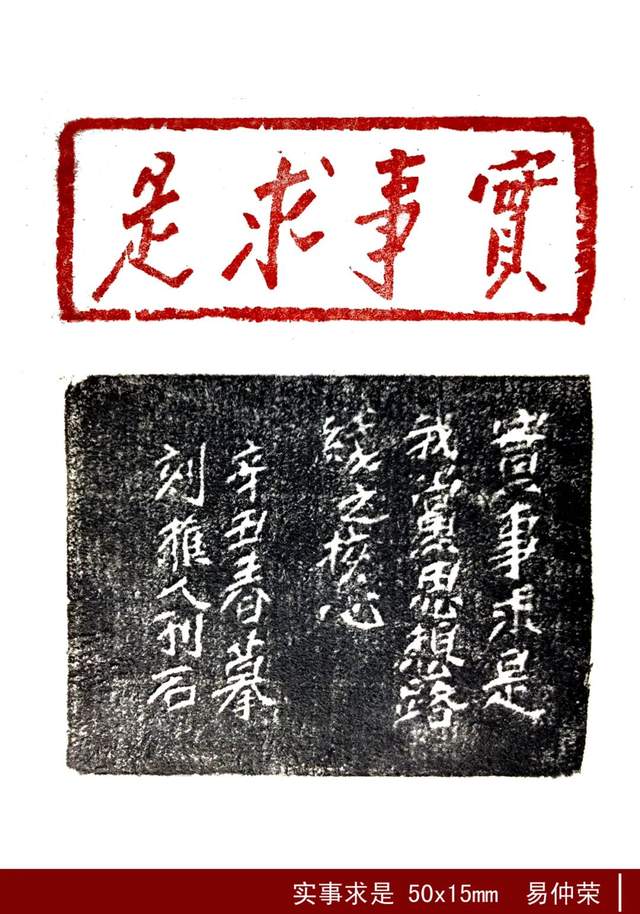 實事求是
實事求是
我黨思想路
綫之核心
辛丑春暮
人刊石
实事求是 50x15mm 易仲荣